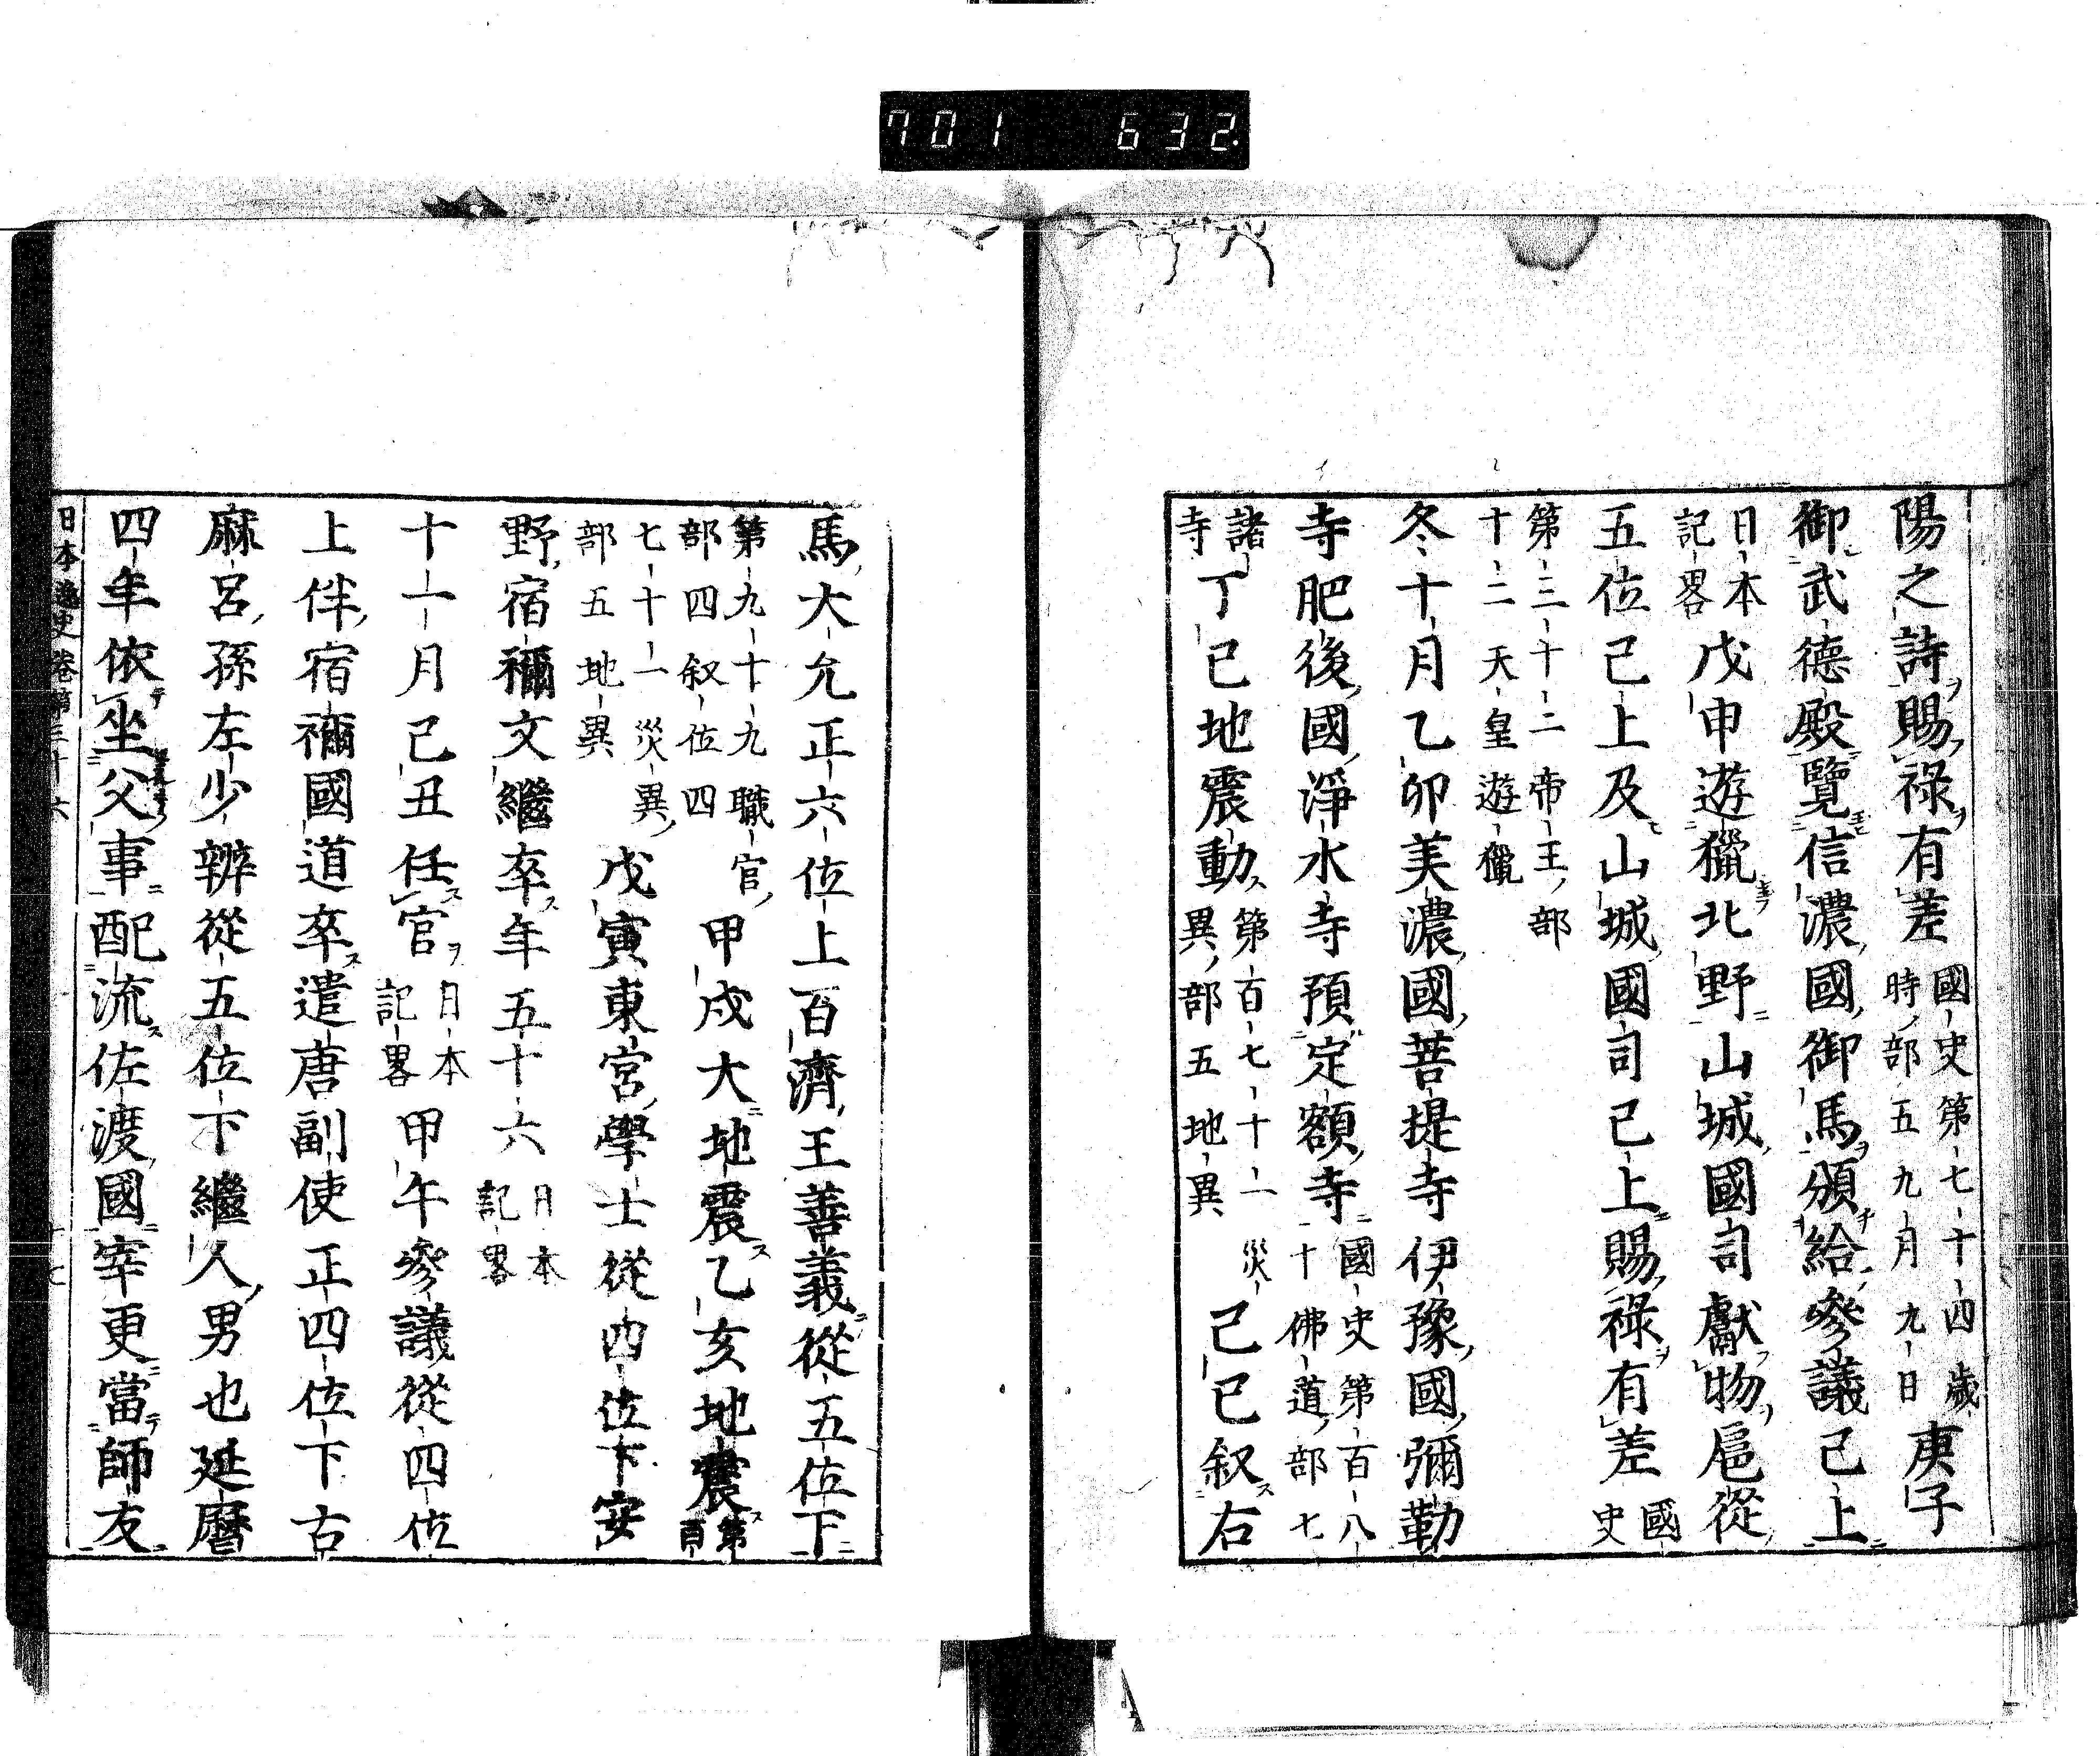 701 632
陽之詩賜祿有差國史第七十四歲時部五九月九日庚子
御武德殿覽信濃國御馬頒給參議已上
日本記畧戊申遊獵北野山城國司獻物扈從
五位已上及山城國司已上賜祿有差國史
第三十二帝王部十二天皇遊獵
冬十月乙卯美濃國菩提寺伊豫國彌勒
寺肥後國淨水寺預定額寺國史第百八十佛道部七
諸寺丁巳地震動第百七十一災異部五地異己巳叙右
馬大允正六位上百濟王善義從五位下
第九十九職官部四叙位四甲戌大地震乙亥地震第百
七十一災異部五地異戊寅東宮學士從四位下安
野宿禰文繼卒年五十六日本記畧
十一月己丑任官日本記畧甲午參議從四位
上伴宿禰國道卒遣唐副使正四位下古
麻呂孫左少辨從五位下繼人男也延曆
四年依坐父事配流佐渡國宰更當師友
日本逸史卷第三十六 十七